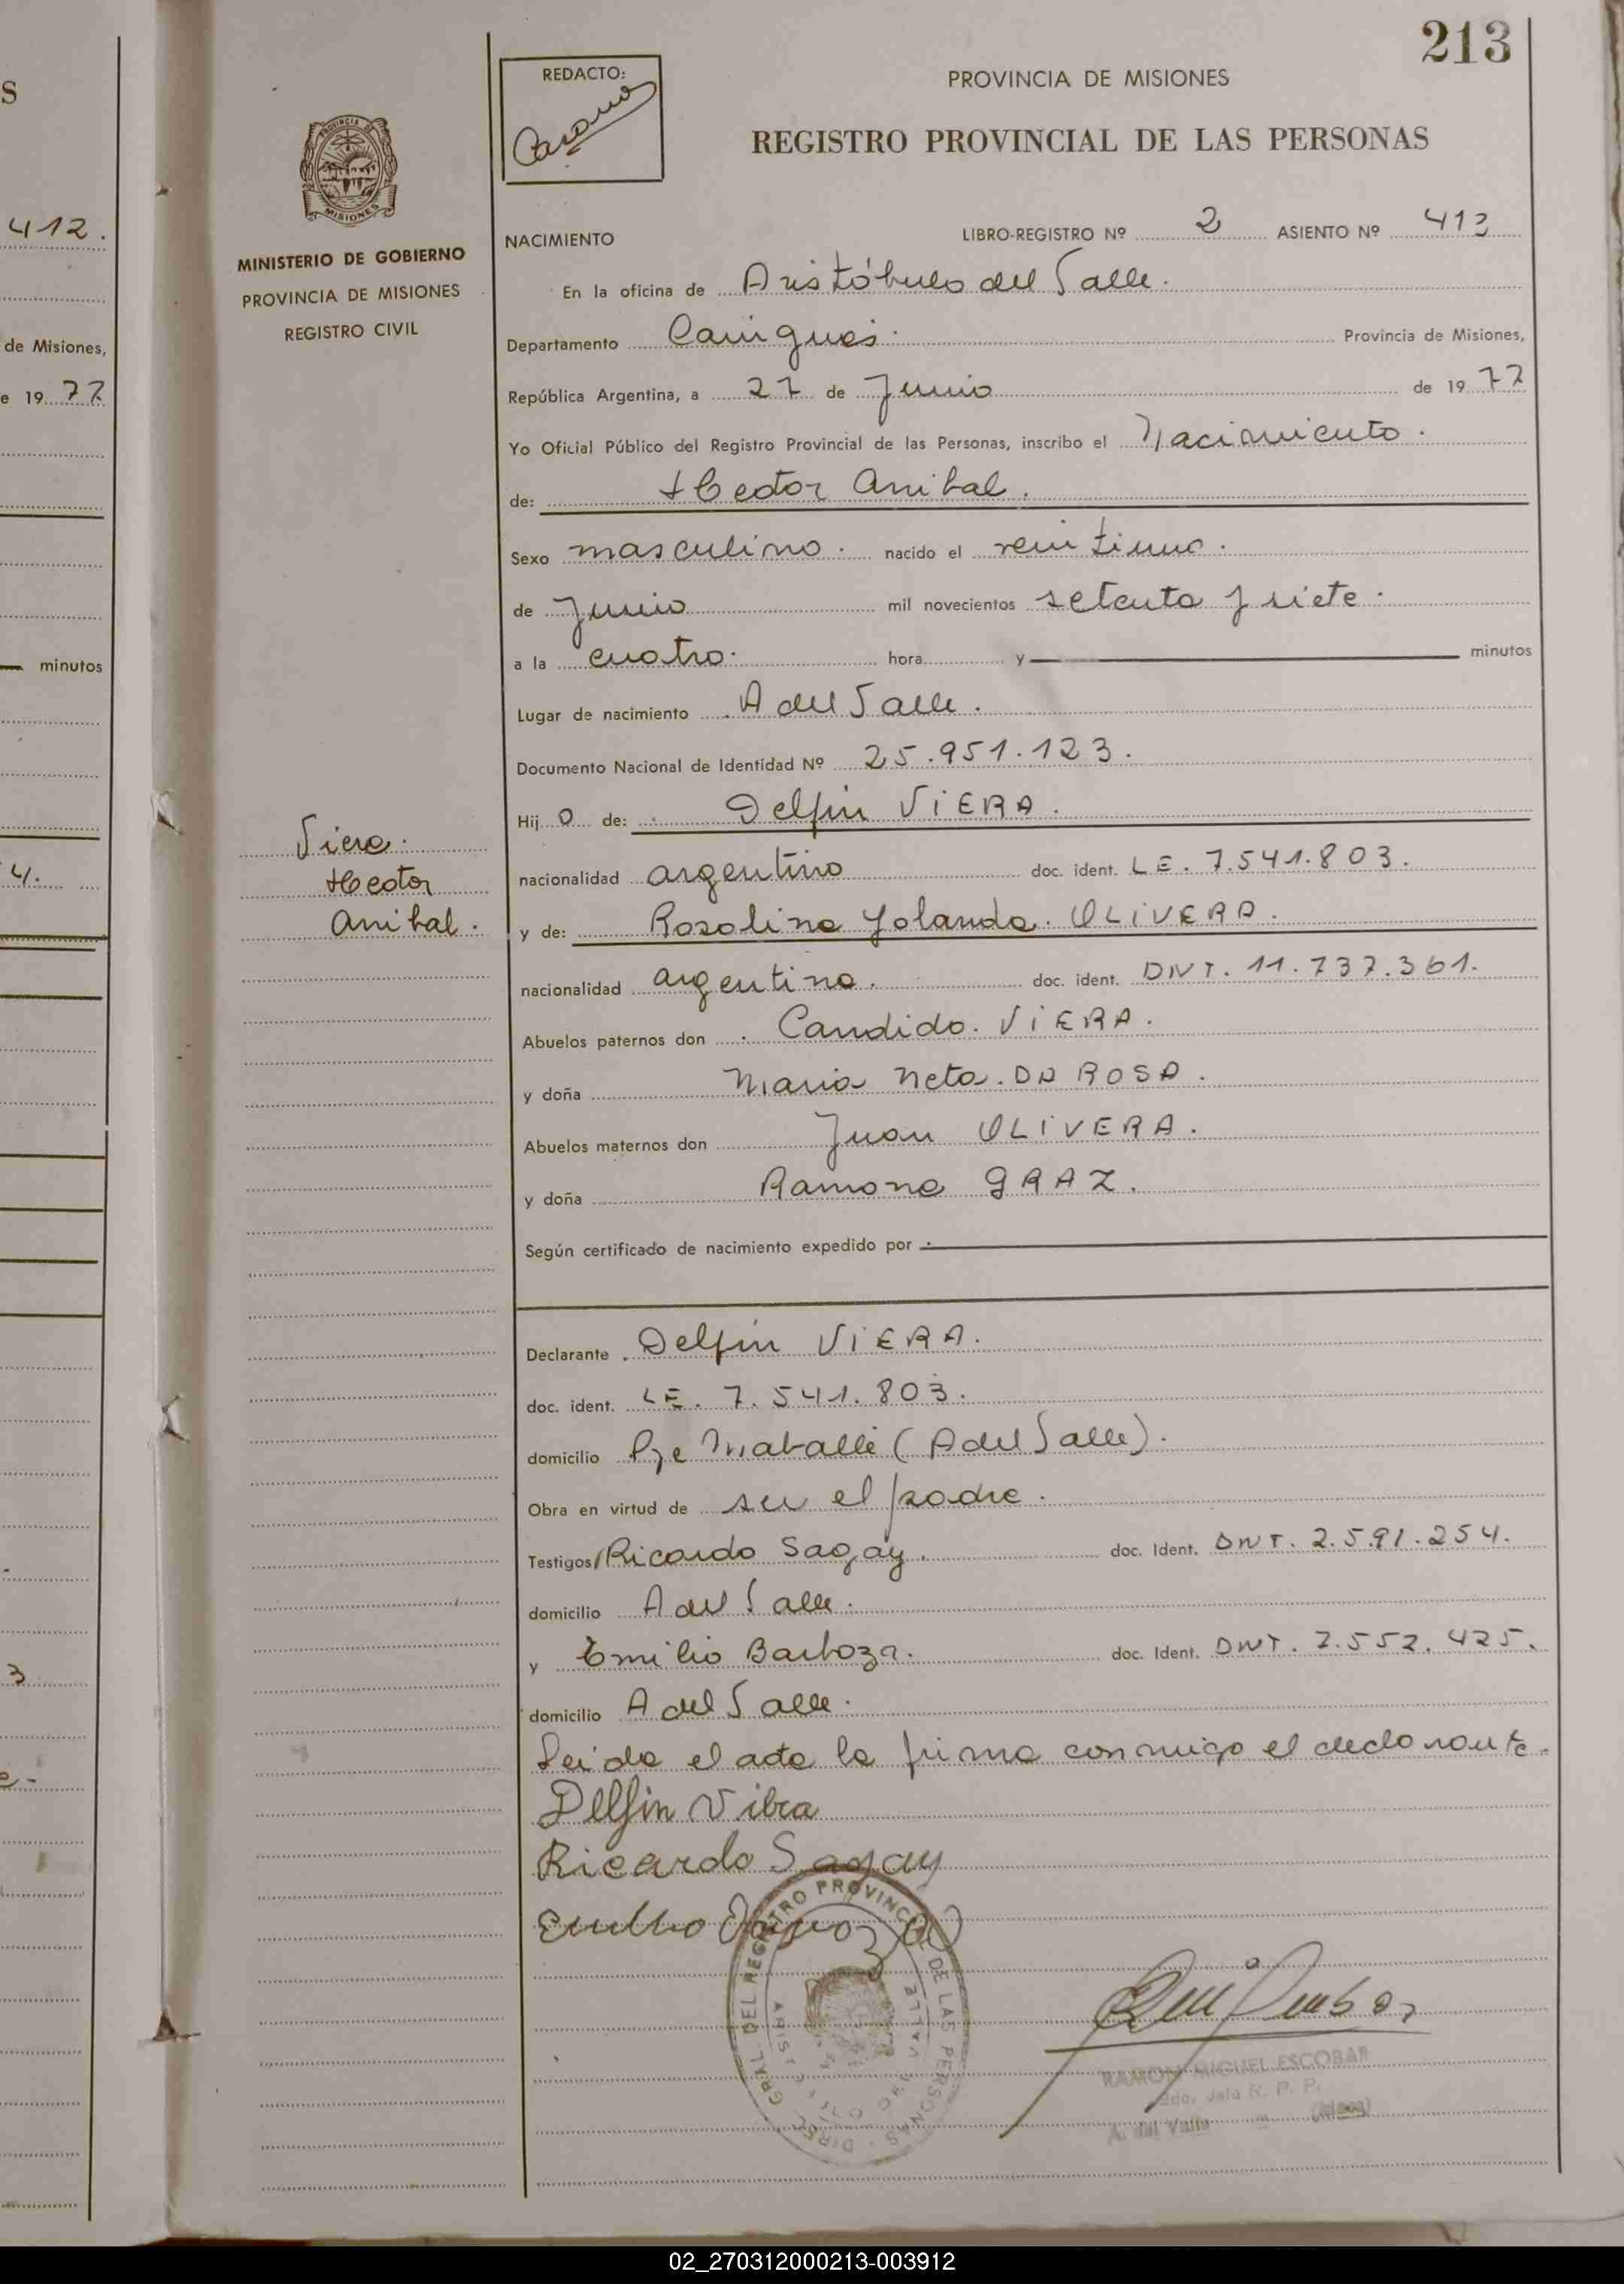 S
412.
de Misiones,
e 19 77
minutos
4.
3
213
PROVINCIA DE MISIONES
MINISTERIO DE GOBIERNO
PROVINCIA DE MISIONES
REGISTRO CIVIL
Viera.
Hector
Anibal.
REDACTO:
PROVINCIA DE MISIONES
REGISTRO PROVINCIAL DE LAS PERSONAS
NACIMIENTO LIBRO-REGISTRO Nº 2 ASIENTO Nº 413
En la oficina de Aristóbulo del Valle.
Departamento Cainguas. Provincia de Misiones,
República Argentina, a 27 de Junio de 19 77
Yo Oficial Público del Registro Provincial de las Personas, inscribo el Nacimiento.
de: Hector Anibal.
Sexo masculino. nacido el veintiuno.
de Junio mil novecientos setenta y siete.
a la cuatro. hora y minutos
Lugar de nacimiento A del Valle.
Documento Nacional de Identidad Nº 25.951.123.
Hij o de: Delfin VIERA.
nacionalidad argentino doc. ident. LE. 7.541.803.
y de: Rosalina Yolanda. OLIVERA.
nacionalidad argentina. doc. ident. DNI. 11.737.361.
Abuelos paternos don Candido. VIERA.
y doña Maria Neta. DA ROSA.
Abuelos maternos don Juan OLIVERA.
y doña Ramona GRAZ.
Según certificado de nacimiento expedido por
Declarante Delfin VIERA.
doc. ident. LE. 7.541.803.
domicilio (A del Valle).
Obra en virtud de ser el padre.
Testigos Ricardo Sagay. doc. Ident. DNI. 2.591.254.
domicilio A del Valle.
y Emilio Barboza. doc. Ident. DNI. 7.552.425.
domicilio A del Valle.
Leida el acta la firma conmigo el declarante.
Delfin Viera
Ricardo Sagay
DIRECC. GRAL. DEL REGISTRO PROVINCIAL DE LAS PERSONAS
RAMON MIGUEL ESCOBAR
2do. Jefe R. P. P.
A. del Valle (Mnes)
02_270312000213-003912